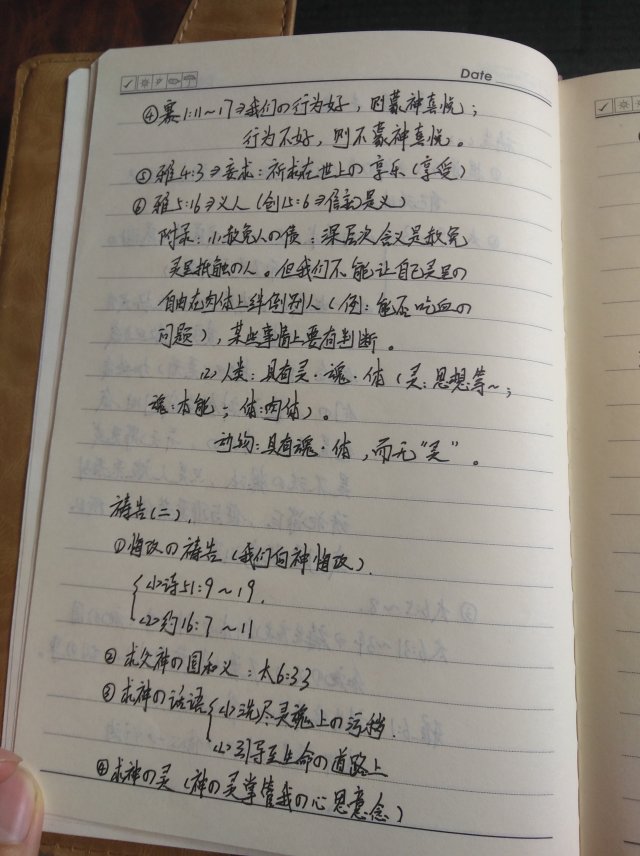 Date
④赛1:11~17⇒我们の行为好，则蒙神喜悦；
行为不好，则不蒙神喜悦。
⑤雅4:3⇒妄求：祈求在世上の享乐(享受)
⑥雅5:16⇒义人(创15:6⇒信主是义)
附录：(1)赦免人の债：深层次含义是赦免
灵里抵触の人。但我们不能让自己灵里の
自由在肉体上绊倒别人(例：能否吃血の
问题)，某些事情上要有判断。
(2)人类：具有灵·魂·体(灵：思想等~；
魂：本能；体：肉体)。
动物：具有魂·体，而无“灵”。
祷告(二)．
①悔改の祷告(我们向神悔改)．
(1)诗51:9~19．
(2)约16:7~11
②求父神の国和义：太6:33
③求神の话语 (1)洗尽灵魂上の污秽．
(2)引导至生命の道路上
④求神の灵(神の灵掌管我の心思意念)